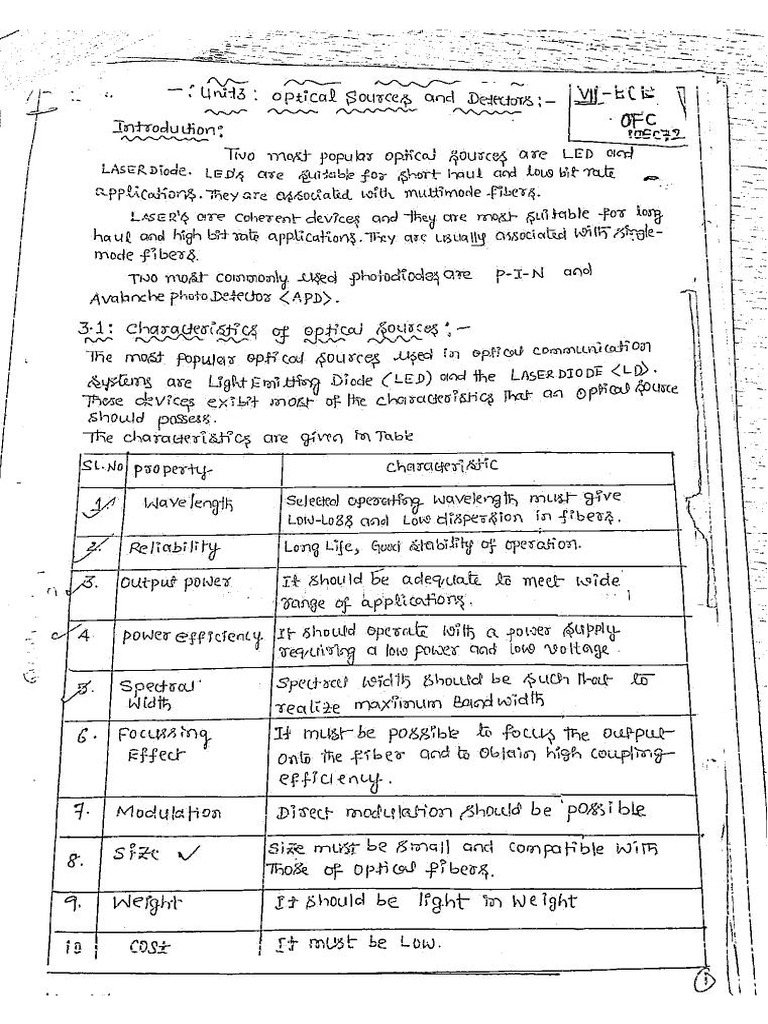 -: Unit3: Optical Sources and Detectors:-
VII-ECE
OFC
10EC72
Introduction:
Two most popular optical sources are LED and
LASER Diode. LED's are suitable for short haul and low bit rate
applications. They are associated with multimode fibers.
LASER's are coherent devices and they are most suitable for long
haul and high bit rate applications. They are usually associated with single-
mode fibers.
Two most commonly used photodiodes are P-I-N and
Avalanche Photo Detector <APD>.
3.1: Characteristics of optical sources:-
The most popular optical sources used in optical communication
systems are Light Emitting Diode (LED) and the LASER DIODE <LD>.
These devices exibit most of the characteristics that an optical source
should possess.
The characteristics are given in Table
SL.No Property Characteristic
1. Wavelength Selected operating wavelength must give
Low-Loss and Low dispersion in fibers.
2. Reliability Long Life, Good stability of operation.
3. Output power It should be adequate to meet wide
range of applications.
4 Power efficiency It should operate with a power supply
requiring a low power and low voltage.
5. Spectral Width Spectral width should be such that to
realize maximum Bandwidth
6. Focussing Effect It must be possible to focus the output
onto the fiber and to obtain high coupling
efficiency.
7. Modulation Direct modulation should be possible
8. Size Size must be small and compatible with
those of optical fibers.
9. Weight It should be light in weight
10 Cost It must be Low.
1